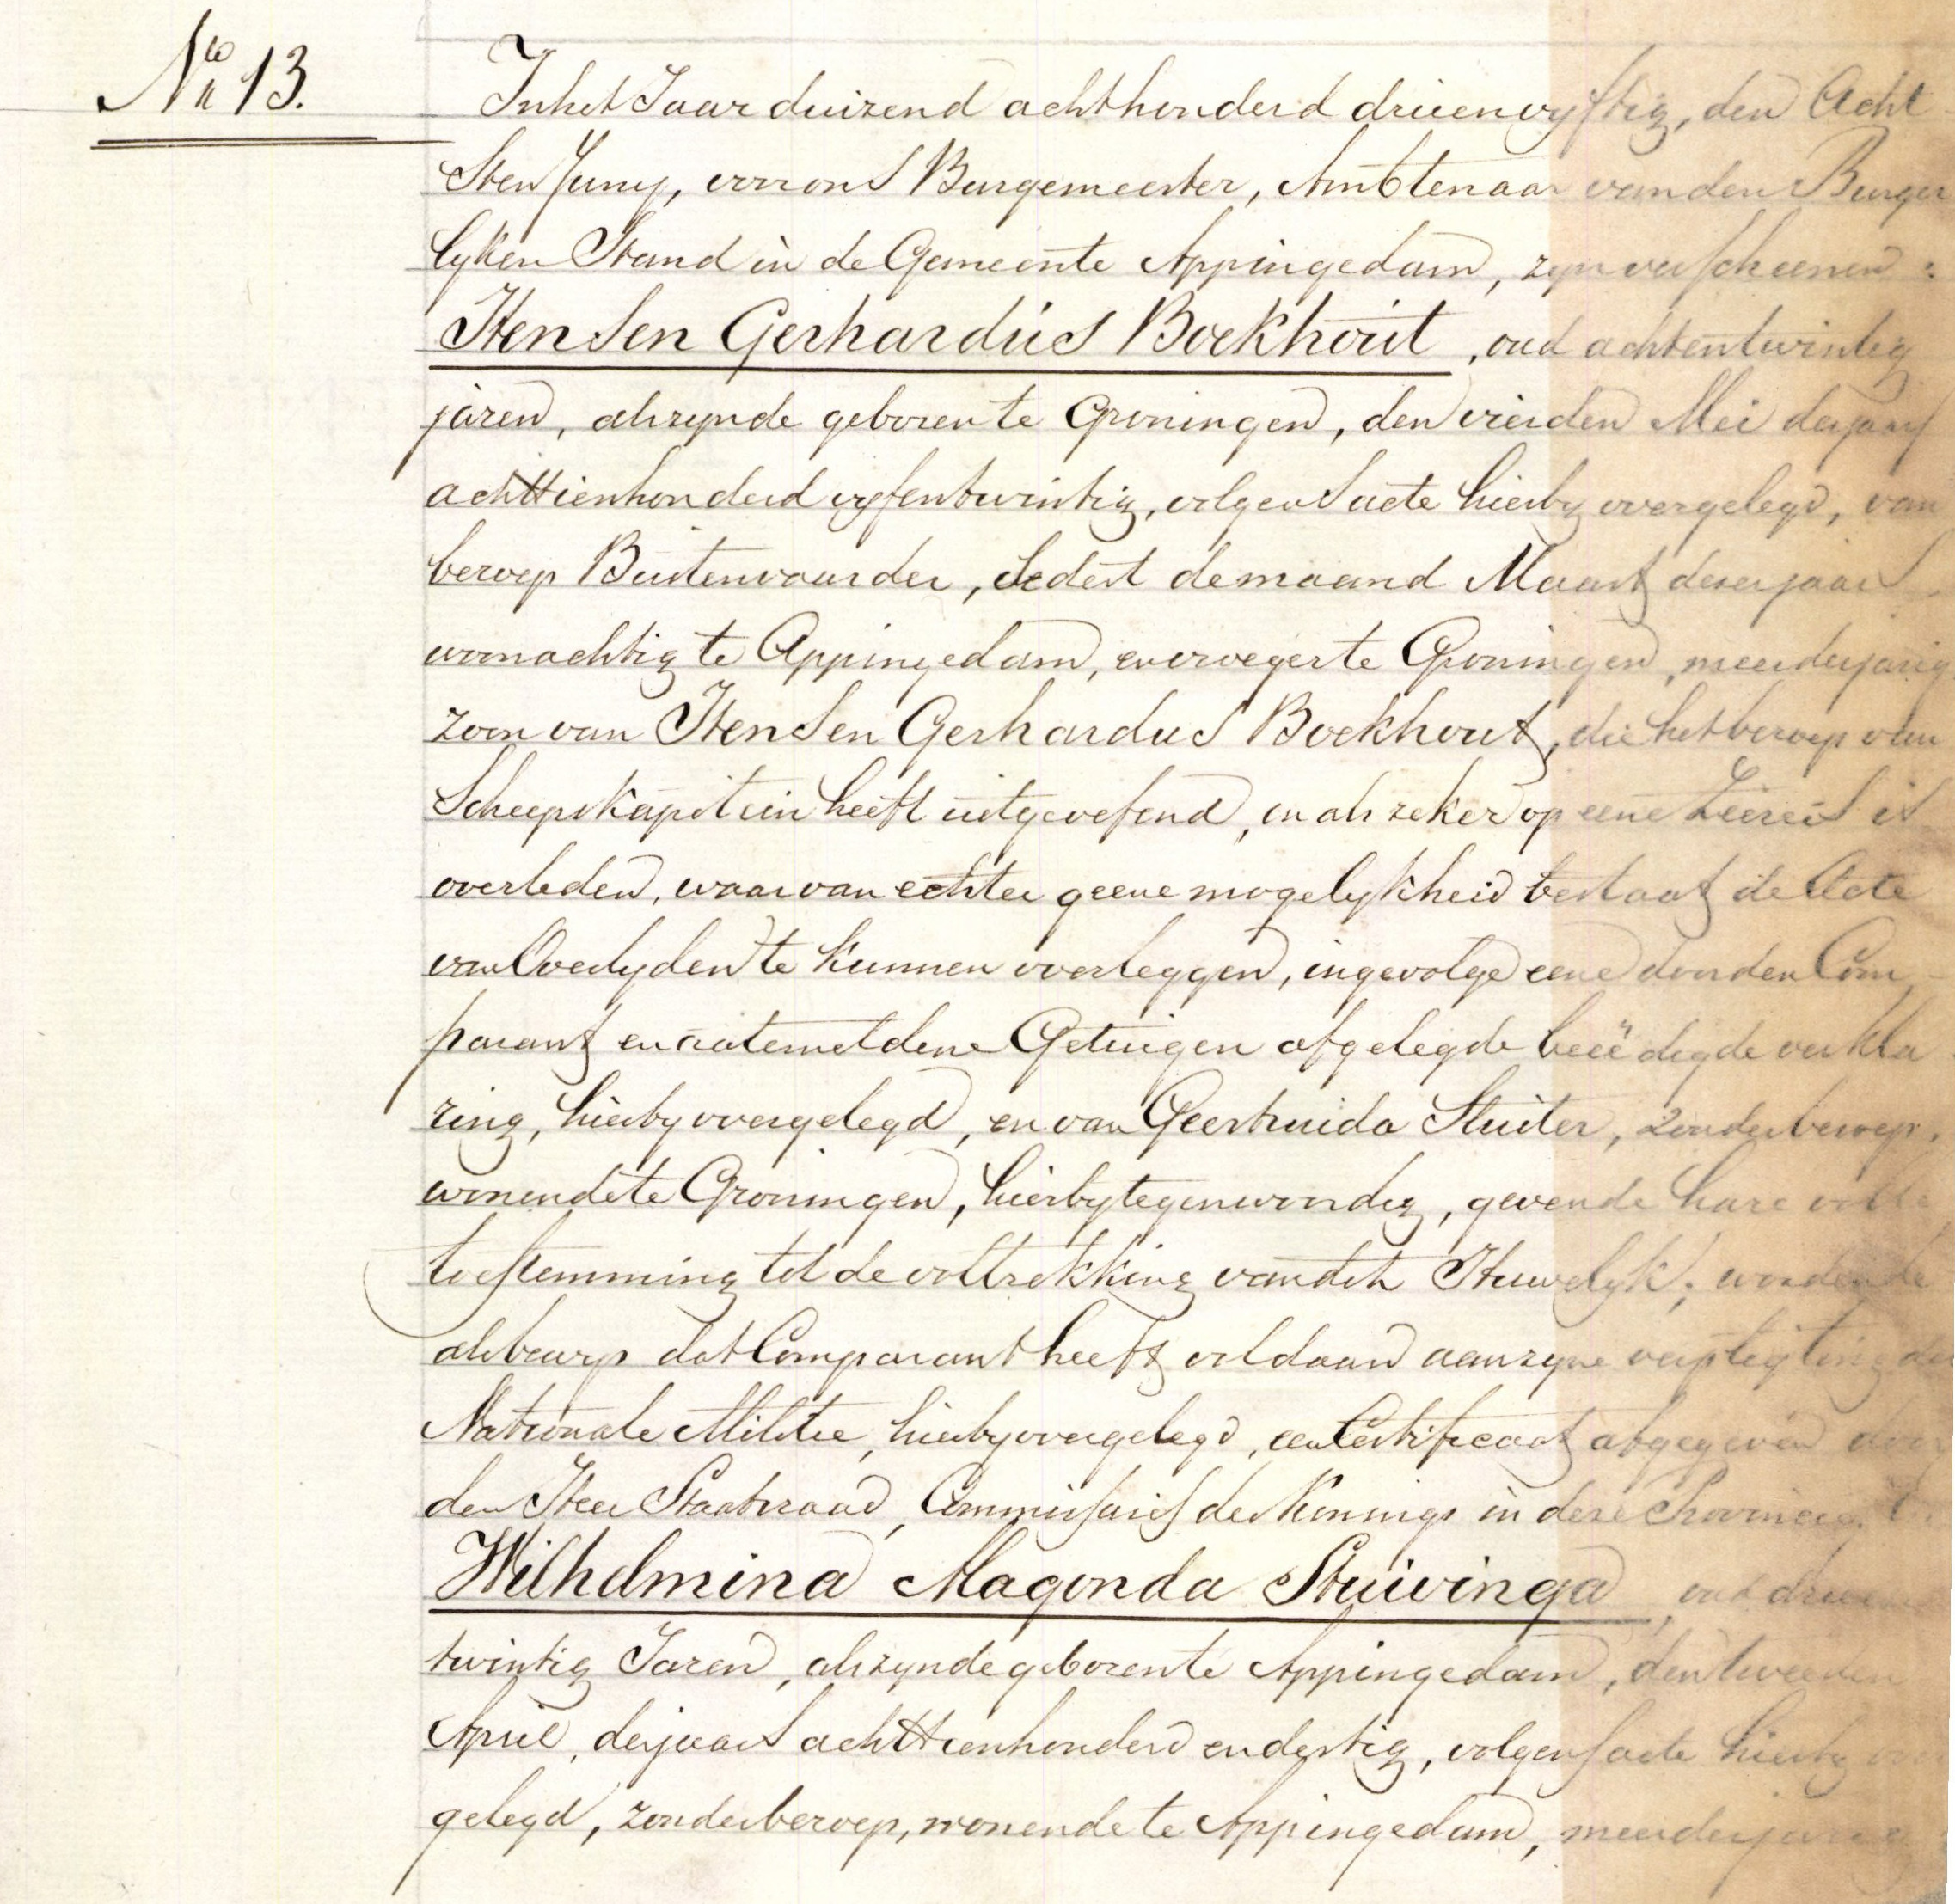 No 13.
In het Jaar duizend achthonderd drieenvyftig, den Acht
sten Juny, voor ons Burgemeester, Ambtenaar van den Burger
lyken Stand in de Gemeente Appingedam, zyn verscheenen :
Hensen Gerhardus Boekhout, oud achtentwintig
jaren, als zynde geboren te Groningen, den vierden Mei des jaars
achttienhonderd vyfentwintig, volgens acte hierby overgelegd, van
beroep Buitenvaarder, Sedert de maand Maart dezes jaars
woonachtig te Appingedam, en vroeger te Groningen, meerderjarig
zoon van Hensen Gerhardus Boekhout, die het beroep van
Scheepskapitein heeft uitgeoefend, en als zeker op eene Zeereis is
overleden, waarvan echter geene mogelykheid bestaat de Acte
van Overlyden te kunnen overleggen, ingevolge eene door den Com
parant en natemeldene Getuigen afgelegde beëedigde verkla
ring, hierby overgelegd, en van Geertruida Sluiter, zonder beroep,
wonende te Groningen, hierby tegenwoordig, gevende hare volle
toestemming tot de voltrekking van dit Huwelyk; wordende
als bewys dat Comparant heeft voldaan aan zyne verpligting der
Nationale Militie, hierby overgelegd, een Certificaat afgegeven door
den Heer Staatsraad, Commissaris des Konings in deze Provincie. En
Wilhelmina Magonda Stuivinga, oud drieen
twintig Jaren, als zynde geboren te Appingedam, den tweeden
April, des jaars achttienhonderd en dertig, volgens acte hierby over
gelegd, zonder beroep, wonende te Appingedam, meerderjarige